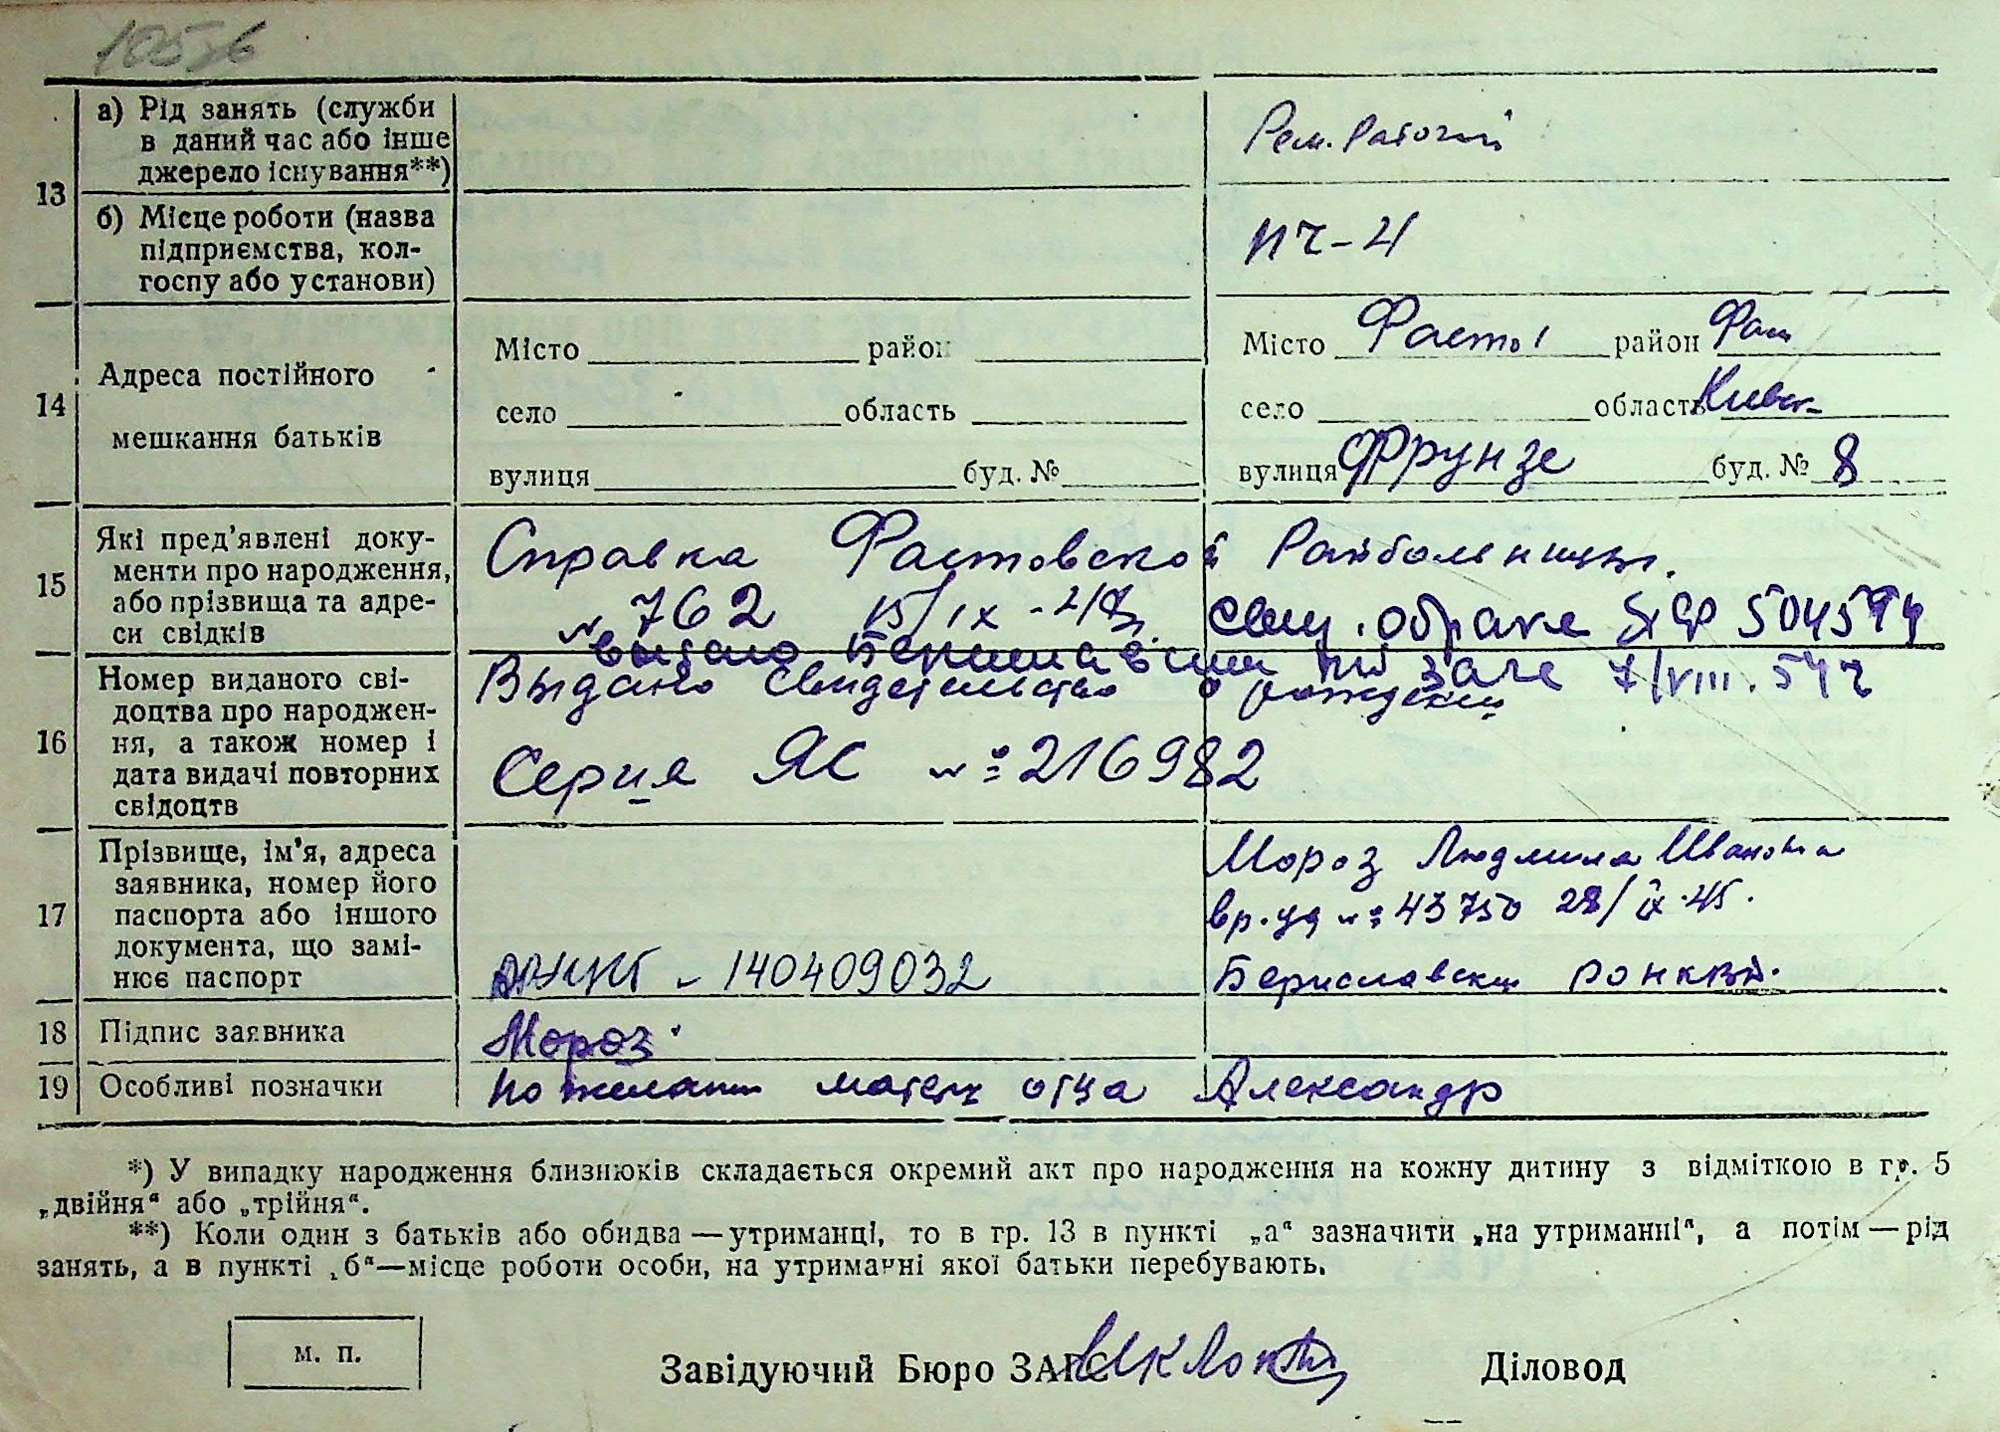 13
а) Рід занять (служби
в даний час або інше
джерело існування**)
Рем. Рабочий
б) Місце роботи (назва
підприємства, кол-
госпу або установи)
ПЧ-4
14
Адреса постійного
мешкання батьків
Місто район
село область
вулиця буд. №
Місто Фастов район Фаст
село область Киевск
вулиця Фрунзе буд. № 8
15
Які пред’явлені доку-
менти про народження,
або прізвища та адре-
си свідків
Справка Фастовской Райбольницы.
№ 762 15/IX - 48. Свид. о браке 504594
выдано Бериславским загс 7/VIII. 54 г
16
Номер виданого сві-
доцтва про народжен-
ня, а також номер і
дата видачі повторних
свідоцтв
Выдано Свидетельство о рождении
Серия ЯС № 216982
17
Прізвище, ім’я, адреса
заявника, номер його
паспорта або іншого
документа, що замі-
нює паспорт
Мороз Людмила Ивановна
вр. уд № 43750 28/IX.45.
Бериславским РОНКВД.
140409032
18
Підпис заявника
Мороз
19
Особливі позначки
По желанию матери отца Александр
*) У випадку народження близнюків складається окремий акт про народження на кожну дитину з відміткою в гр. 5
„двійня“ або „трійня“.
**) Коли один з батьків або обидва — утриманці, то в гр. 13 в пункті „а“ зазначити „на утриманні“, а потім — рід
занять, а в пункті „б“—місце роботи особи, на утриманні якої батьки перебувають.
м. п.
Завідуючий Бюро ЗАГС
Діловод